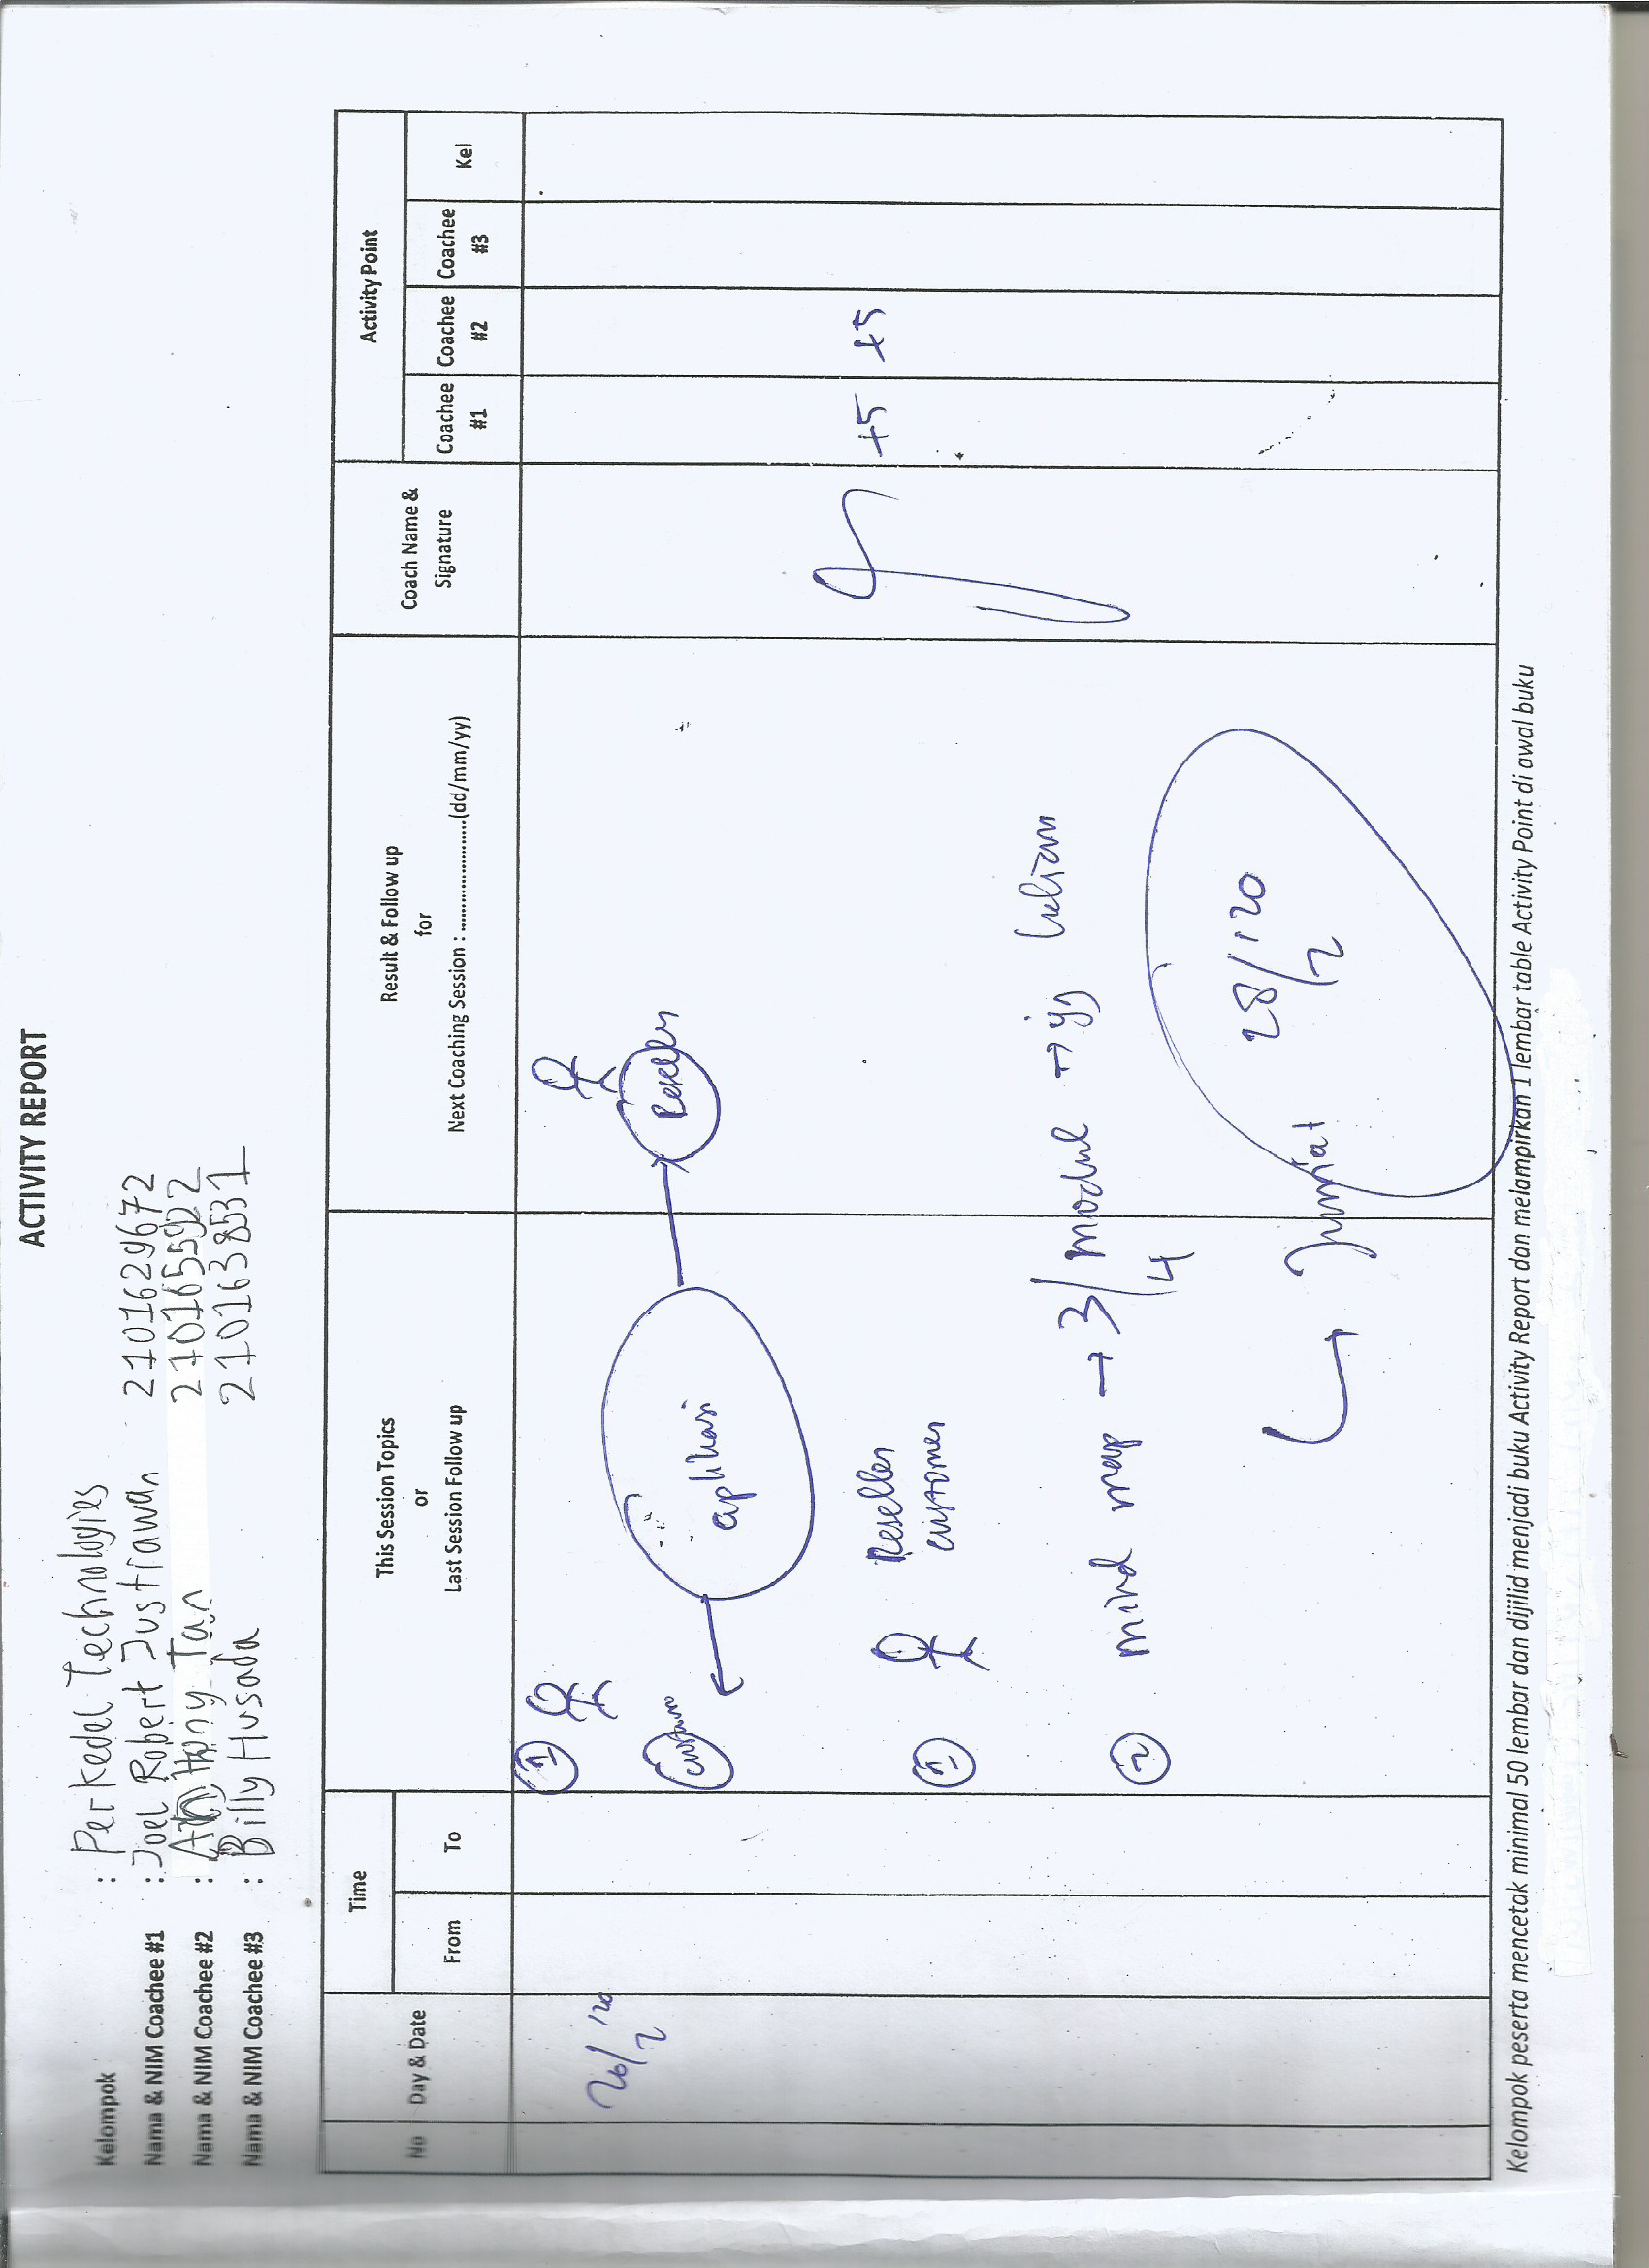 ACTIVITY REPORT
Kelompok : Per Kedel Technologies
Nama & NIM Coachee #1 : Joel Robert Justiawan 2101629672
Nama & NIM Coachee #2 : Anthony Tan 2101655922
Nama & NIM Coachee #3 : Billy Husada 2101638531
No
Day & Date
Time
From
To
This Session Topics
or
Last Session Follow up
Result & Follow up
for
Next Coaching Session : ........................(dd/mm/yy)
Coach Name &
Signature
Activity Point
Coachee
#1
Coachee
#2
Coachee
#3
Kel
26/2 '20
1
aplikasi
Reseller
1 Reseller
customer
+5 +5
2 mind map → 3/4 modul →
Jumat
28/2 '20
Kelompok peserta mencetak minimal 50 lembar dan dijilid menjadi buku Activity Report dan melampirkan 1 lembar table Activity Point di awal buku